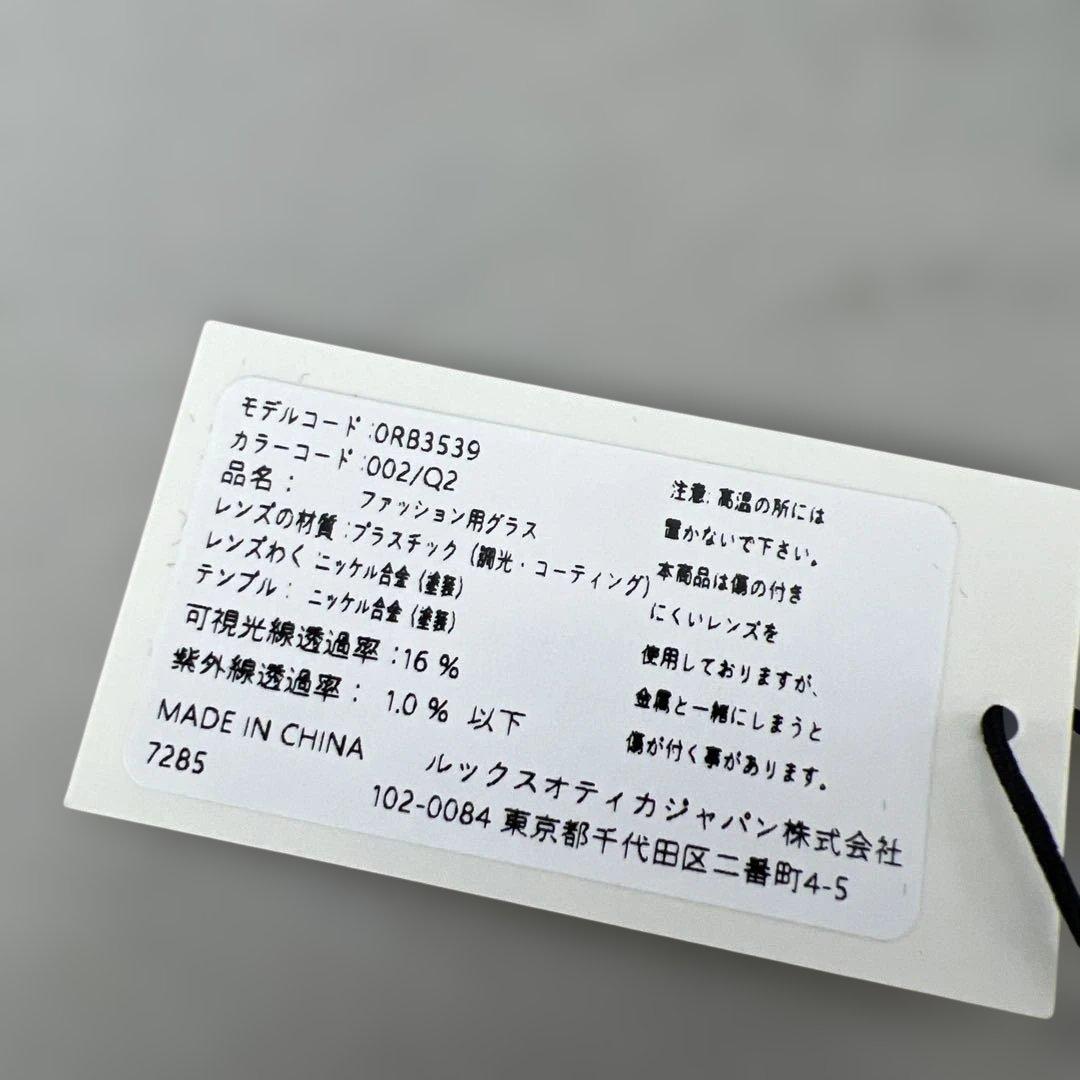 モデルコード:0RB3539
カラーコード:002/Q2
品名: ファッション用グラス
レンズの材質:プラスチック (調光・コーティング)
レンズわく ニッケル合金 (塗装)
テンプル: ニッケル合金 (塗装)
可視光線透過率:16 %
紫外線透過率: 1.0 % 以下
MADE IN CHINA
7285
注意: 高温の所には
置かないで下さい。
本商品は傷の付き
にくいレンズを
使用しておりますが、
金属と一緒にしまうと
傷が付く事があります。
ルックスオティカジャパン株式会社
102-0084 東京都千代田区二番町4-5